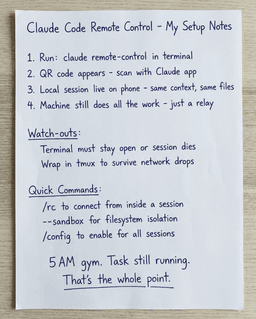 Claude Code Remote Control - My Setup Notes
1. Run: claude remote-control in terminal
2. QR code appears - scan with Claude app
3. Local session live on phone - same context, same files
4. Machine still does all the work - just a relay
Watch-outs:
Terminal must stay open or session dies
Wrap in tmux to survive network drops
Quick Commands:
/rc to connect from inside a session
--sandbox for filesystem isolation
/config to enable for all sessions
5 AM gym. Task still running.
That's the whole point.